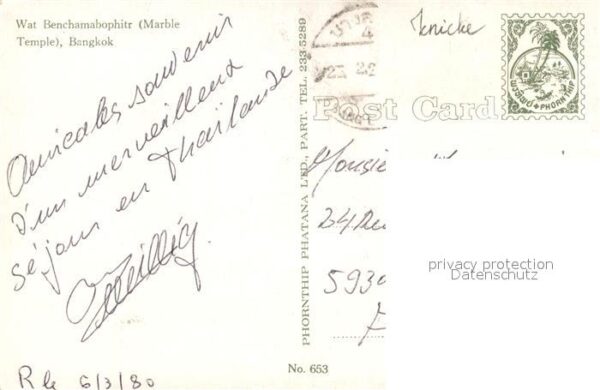 Wat Benchamabophitr (Marble
Temple), Bangkok
Amicales souvenir
d'un merveilleux
séjour en Thaïlande
R le 6/3/80
PHORNTHIP PHATANA LTD., PART. TEL. 233 5289
No. 653
knicke
Post Card
PHORNTHIP
Monsie
24
5930
privacy protection
Datenschutz